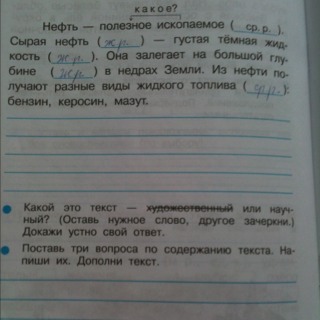 какое?
Нефть — полезное ископаемое ( ср. р. ).
Сырая нефть ( ж.р. ) — густая тёмная жид-
кость ( ж.р. ). Она залегает на большой глу-
бине ( ж.р. ) в недрах Земли. Из нефти по-
лучают разные виды жидкого топлива ( ср.р. ):
бензин, керосин, мазут.
Какой это текст — художественный или науч-
ный? (Оставь нужное слово, другое зачеркни.)
Докажи устно свой ответ.
Поставь три вопроса по содержанию текста. На-
пиши их. Дополни текст.